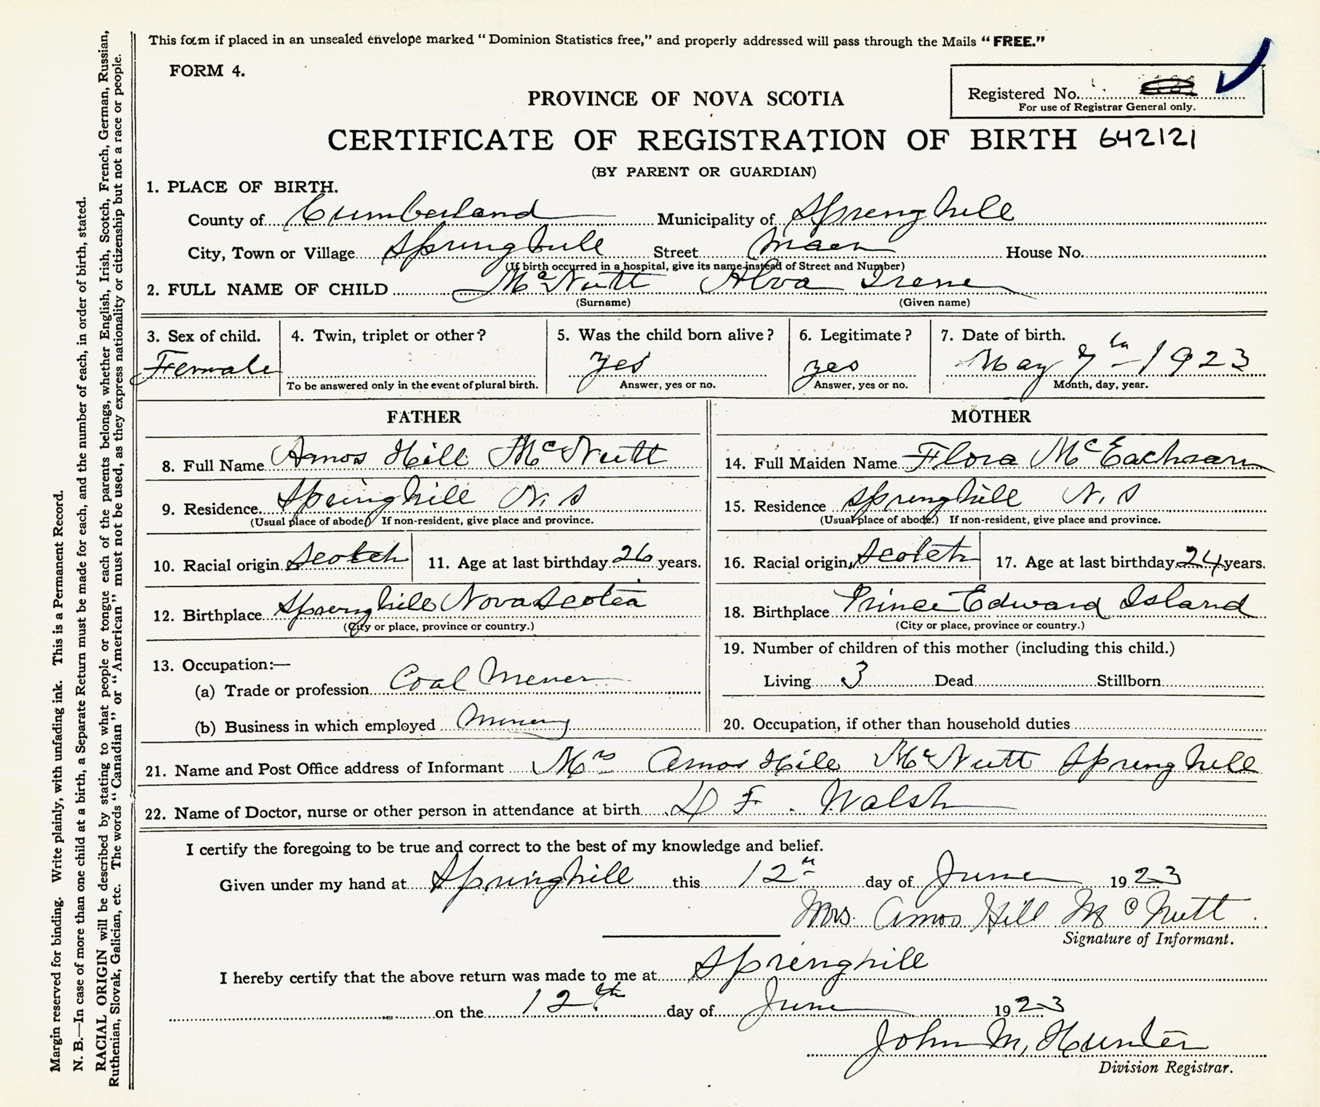 This form if placed in an unsealed envelope marked "Dominion Statistics free," and properly addressed will pass through the Mails "FREE."
FORM 4.
Registered No.
For use of Registrar General only.
PROVINCE OF NOVA SCOTIA
CERTIFICATE OF REGISTRATION OF BIRTH 642121
(BY PARENT OR GUARDIAN)
1. PLACE OF BIRTH.
County of Cumberland Municipality of Springhill
City, Town or Village Springhill Street Main House No.
(If birth occurred in a hospital, give its name instead of Street and Number)
2. FULL NAME OF CHILD McNutt Alva Irene
(Surname) (Given name)
3. Sex of child. 4. Twin, triplet or other? 5. Was the child born alive? 6. Legitimate? 7. Date of birth.
Female yes yes May 7th 1923
To be answered only in the event of plural birth. Answer, yes or no. Answer, yes or no. Month, day, year.
FATHER
8. Full Name Amos Hill McNutt
9. Residence Springhill N.S
(Usual place of abode) If non-resident, give place and province.
10. Racial origin Scotch 11. Age at last birthday 26 years.
12. Birthplace Springhill Nova Scotia
(City or place, province or country.)
13. Occupation:—
(a) Trade or profession Coal Miner
(b) Business in which employed Mining
MOTHER
14. Full Maiden Name Flora McEachearn
15. Residence Springhill N.S
(Usual place of abode.) If non-resident, give place and province.
16. Racial origin Scotch 17. Age at last birthday 24 years.
18. Birthplace Prince Edward Island
(City or place, province or country.)
19. Number of children of this mother (including this child.)
Living 3 Dead Stillborn
20. Occupation, if other than household duties
21. Name and Post Office address of Informant Mrs Amos Hill McNutt Springhill
22. Name of Doctor, nurse or other person in attendance at birth D F. Walsh
I certify the foregoing to be true and correct to the best of my knowledge and belief.
Given under my hand at Springhill this 12th day of June 1923
Mrs. Amos Hill McNutt
Signature of Informant.
I hereby certify that the above return was made to me at Springhill
on the 12th day of June 1923
John M. Hunter
Division Registrar.
Margin reserved for binding. Write plainly, with unfading ink. This is a Permanent Record.
N. B.—In case of more than one child at a birth, a Separate Return must be made for each, and the number of each, in order of birth, stated.
RACIAL ORIGIN will be described by stating to what people or tongue each of the parents belongs, whether English, Irish, Scotch, French, German, Russian,
Ruthenian, Slovak, Galician, etc. The words "Canadian" or "American" must not be used, as they express nationality or citizenship but not a race or people.